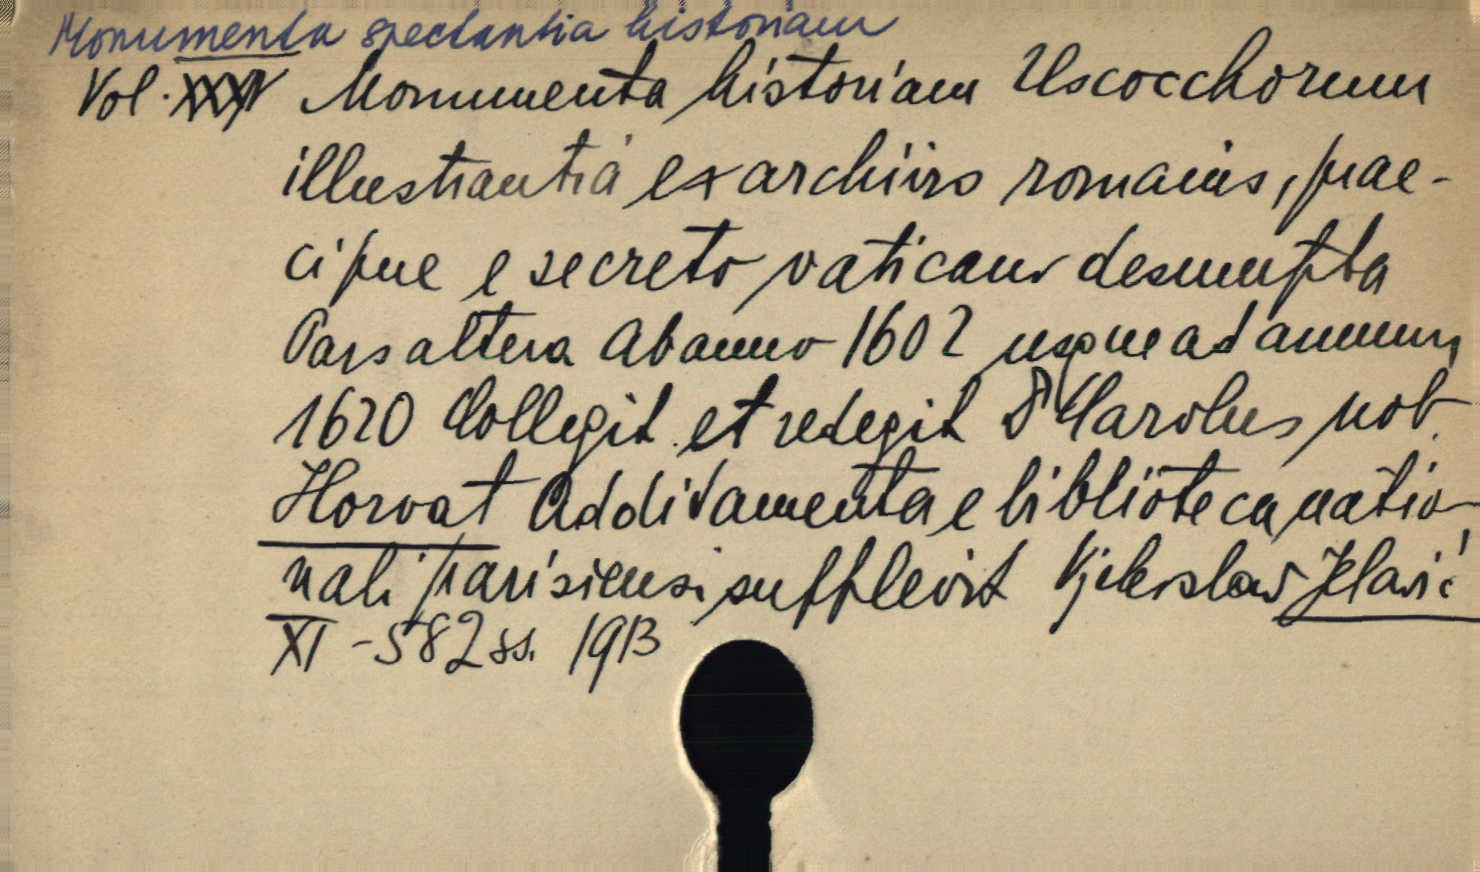 Monumenta spectantia historiam
Vol. XXXIV Monumenta historiam Uscocchorum
illustrantia ex archivis romanis, prae-
cipue e secreto vaticano desumpta
Pars altera Ab anno 1602 usque ad annum
1620 Collegit et redegit Dr Carolus nob.
Horvat Additamenta e biblioteca natio-
nali parisiensi supplevit Vjekoslav Jelavić
XI - 582 ss. 1913